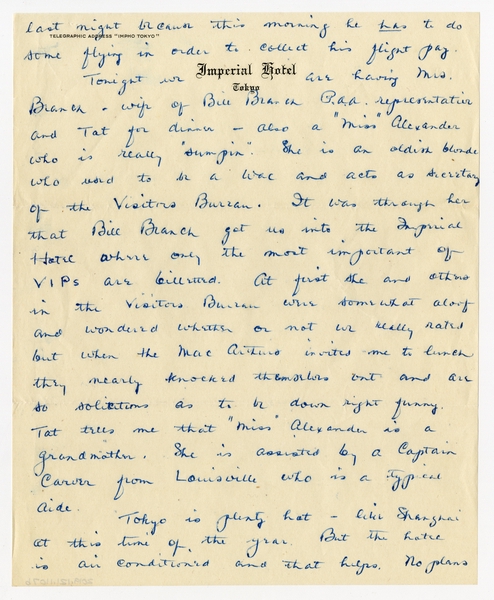 last night because this morning he has to do
TELEGRAPHIC ADDRESS "IMPHO TOKYO"
some flying in order to collect his flight pay.
Imperial Hotel
Tokyo
Tonight we are having Mrs.
Branch - wife of Bill Branch P.a.a. representative
and Tat for dinner - also a "Miss" Alexander
who is really "sumpin". She is an oldish blonde
who used to be a Wac and acts as secretary
of the Visitors Bureau. It was through her
that Bill Branch got us into the Imperial
Hotel where only the most important of
VIPs are billeted. At first she and others
in the Visitors Bureau were somewhat aloof
and wondered whether or not we really rated
but when the Mac Arthurs invited me to lunch
they nearly knocked themselves out and are
so solicitous as to be down right funny.
Tat tells me that "Miss" Alexander is a
grandmother. She is assisted by a Captain
Carver from Louisville who is a typical
aide.
Tokyo is plenty hot - like Shanghai
at this time of the year. But the hotel
is air conditioned and that helps. No plans